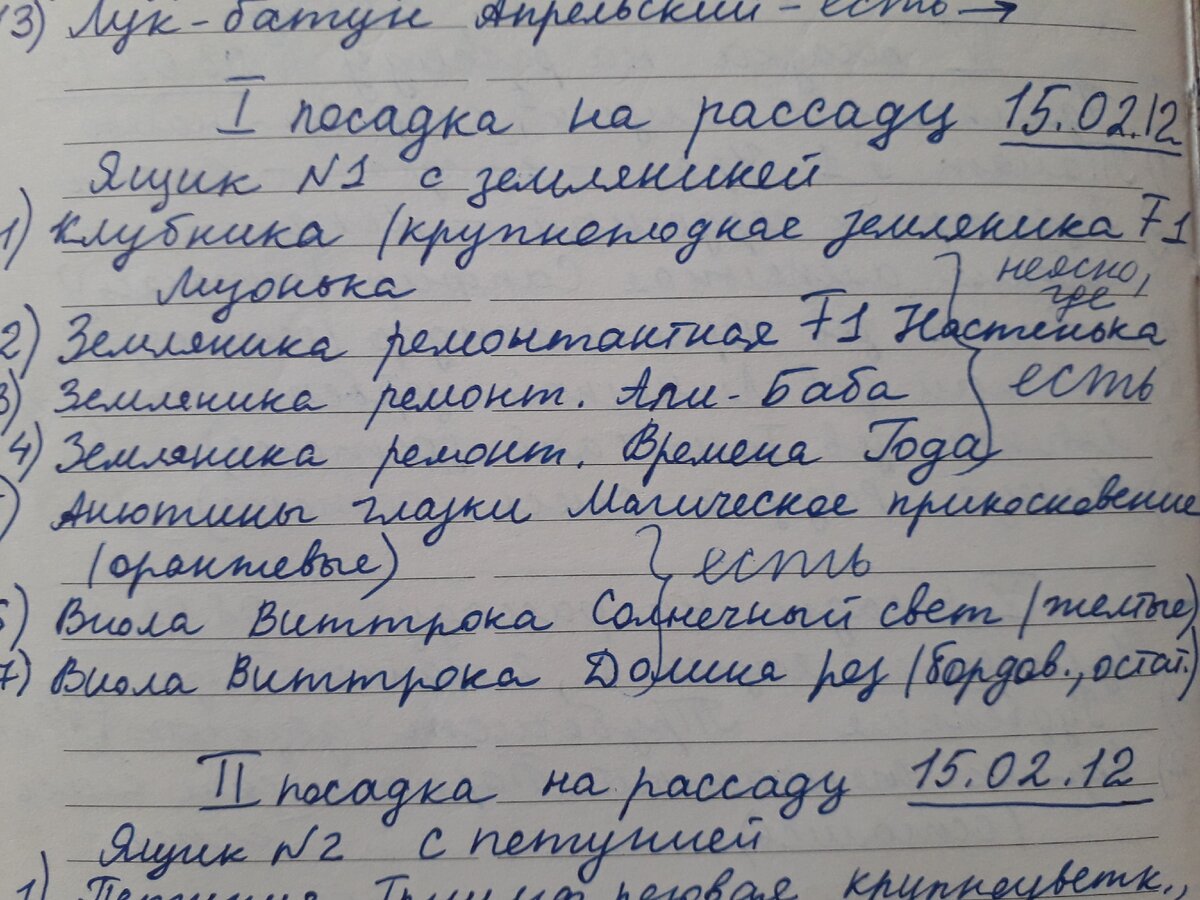 13) Лук-батун Апрельский - есть →
I посадка на рассаду 15.02.12
Ящик N1 с земляникой
1) Клубника (крупноплодная земляника F1
Лизонька
неясно,
где
2) Земляника ремонтантная F1 Настенька
3) Земляника ремонт. Али-Баба
есть
4) Земляника ремонт. Времена Года
Анютины глазки Магическое прикосновение
(оранжевые)
есть
6) Виола Виттрока Солнечный свет (желтые)
7) Виола Виттрока Долина роз (бордов., остат.)
II посадка на рассаду 15.02.12
Ящик N2 с петунией
1) Петуния розовая крупноцветк.,